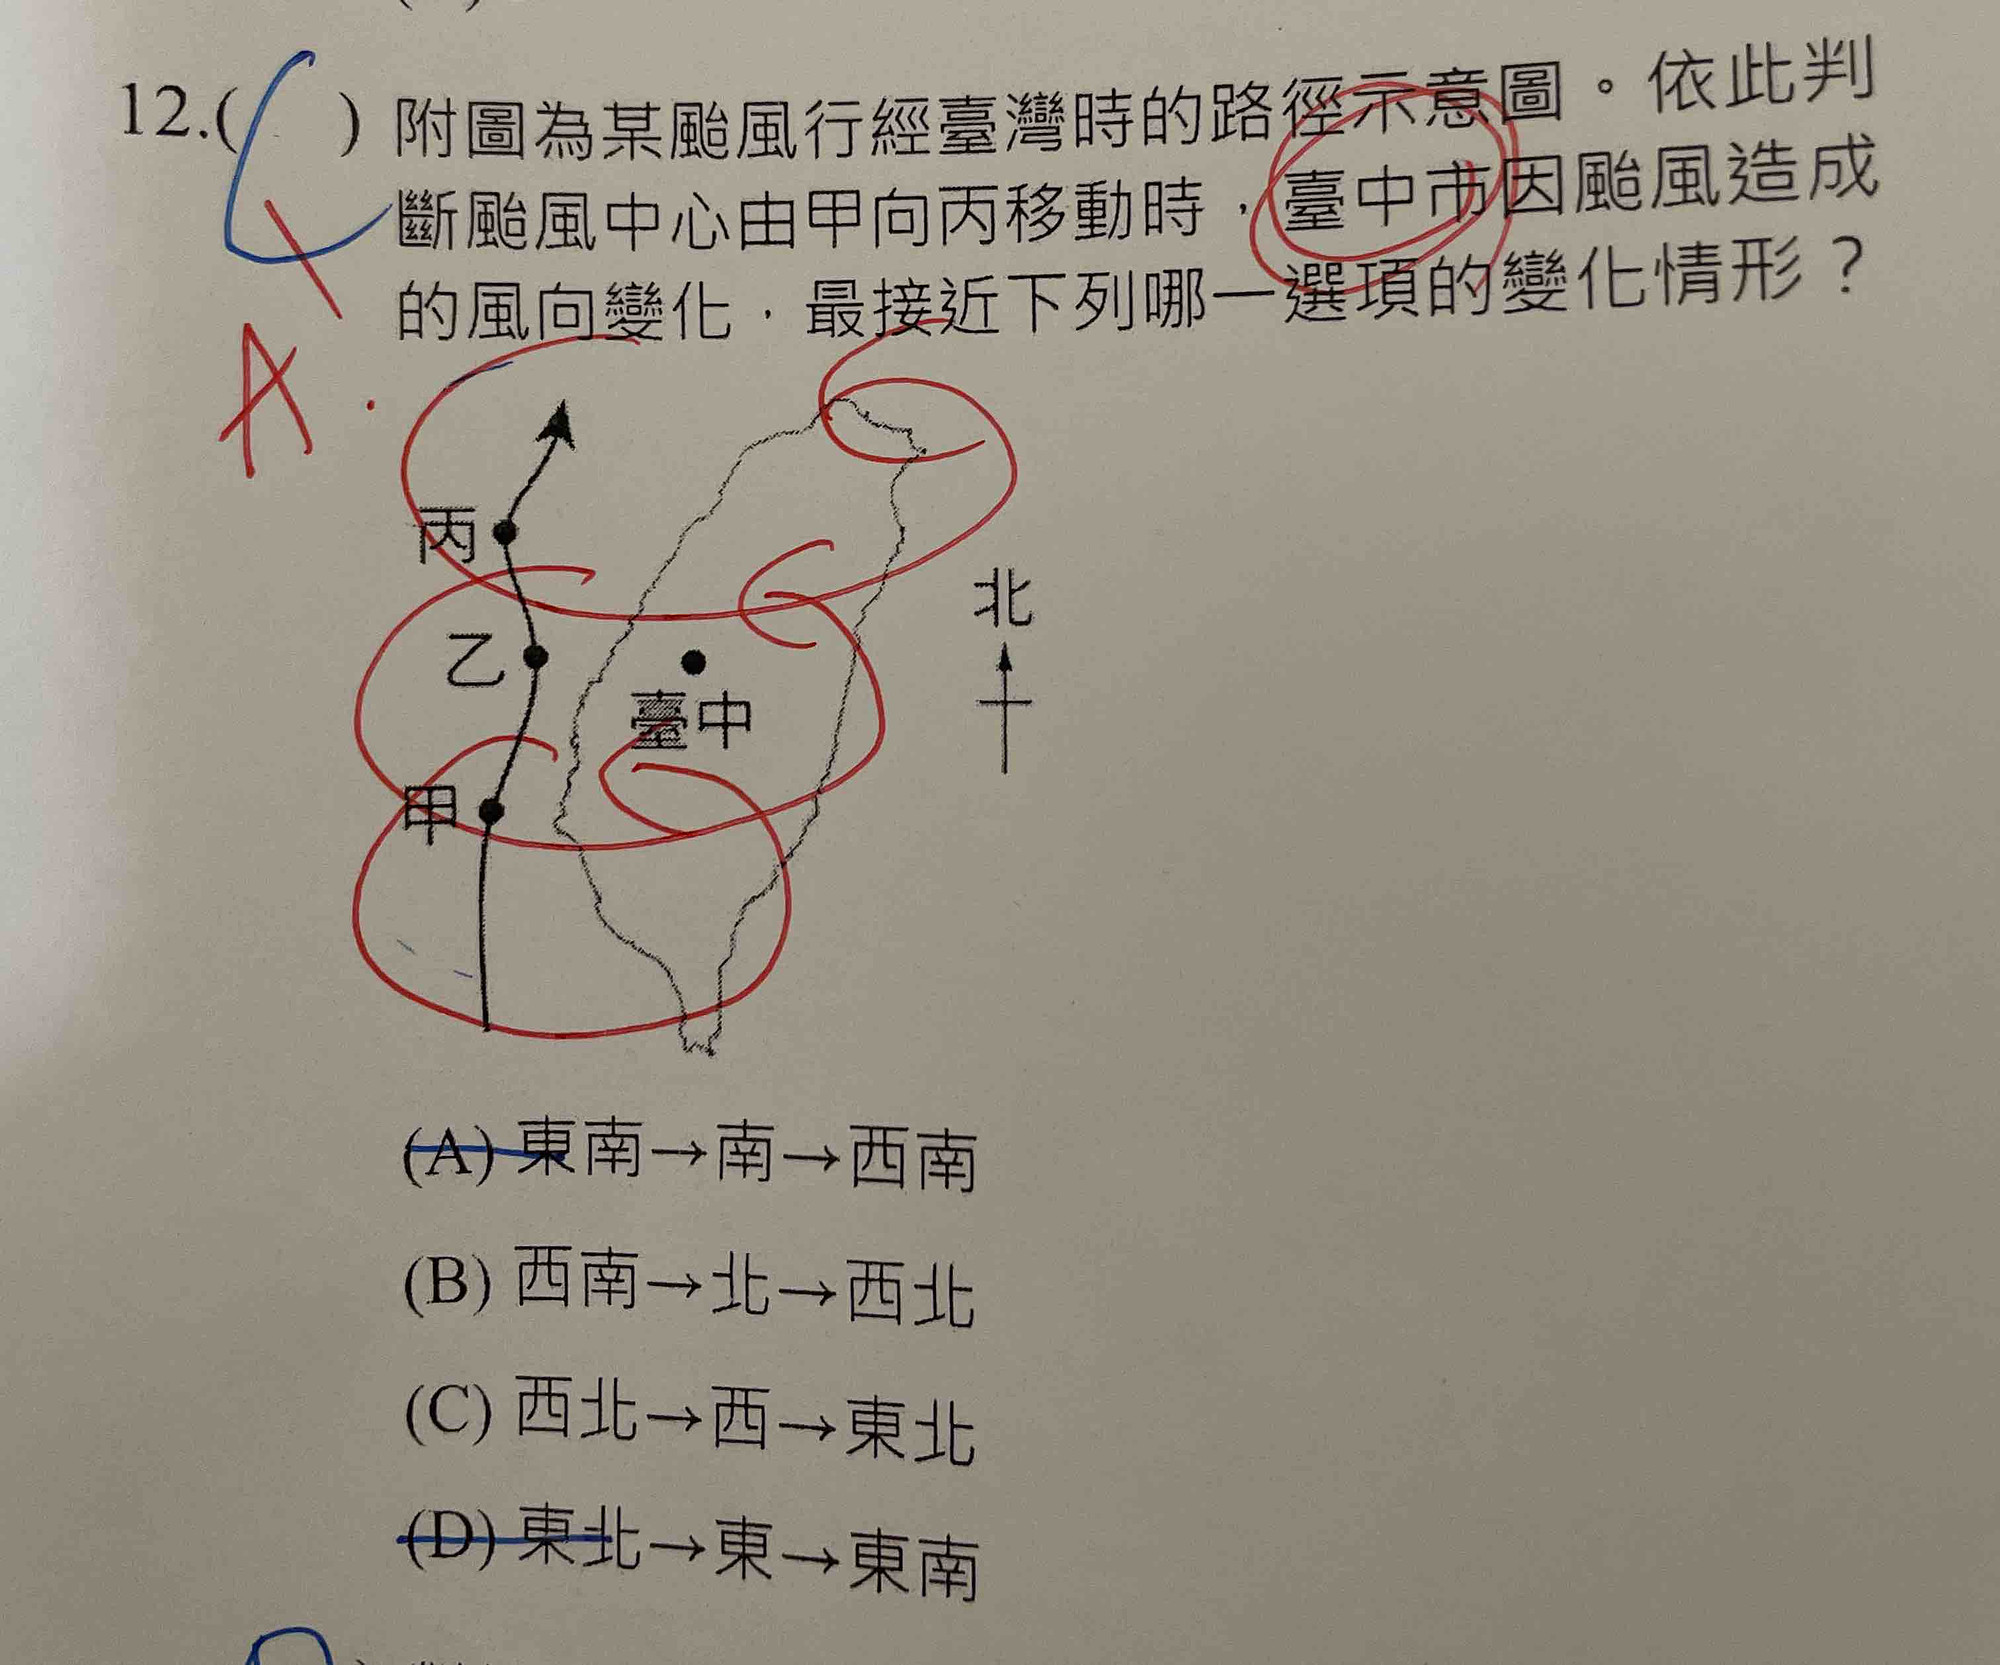 12.( C ) 附圖為某颱風行經臺灣時的路徑示意圖。依此判
斷颱風中心由甲向丙移動時，臺中市因颱風造成
的風向變化，最接近下列哪一選項的變化情形？
A.
丙
北
乙
臺中
甲
(A) 東南→南→西南
(B) 西南→北→西北
(C) 西北→西→東北
(D) 東北→東→東南